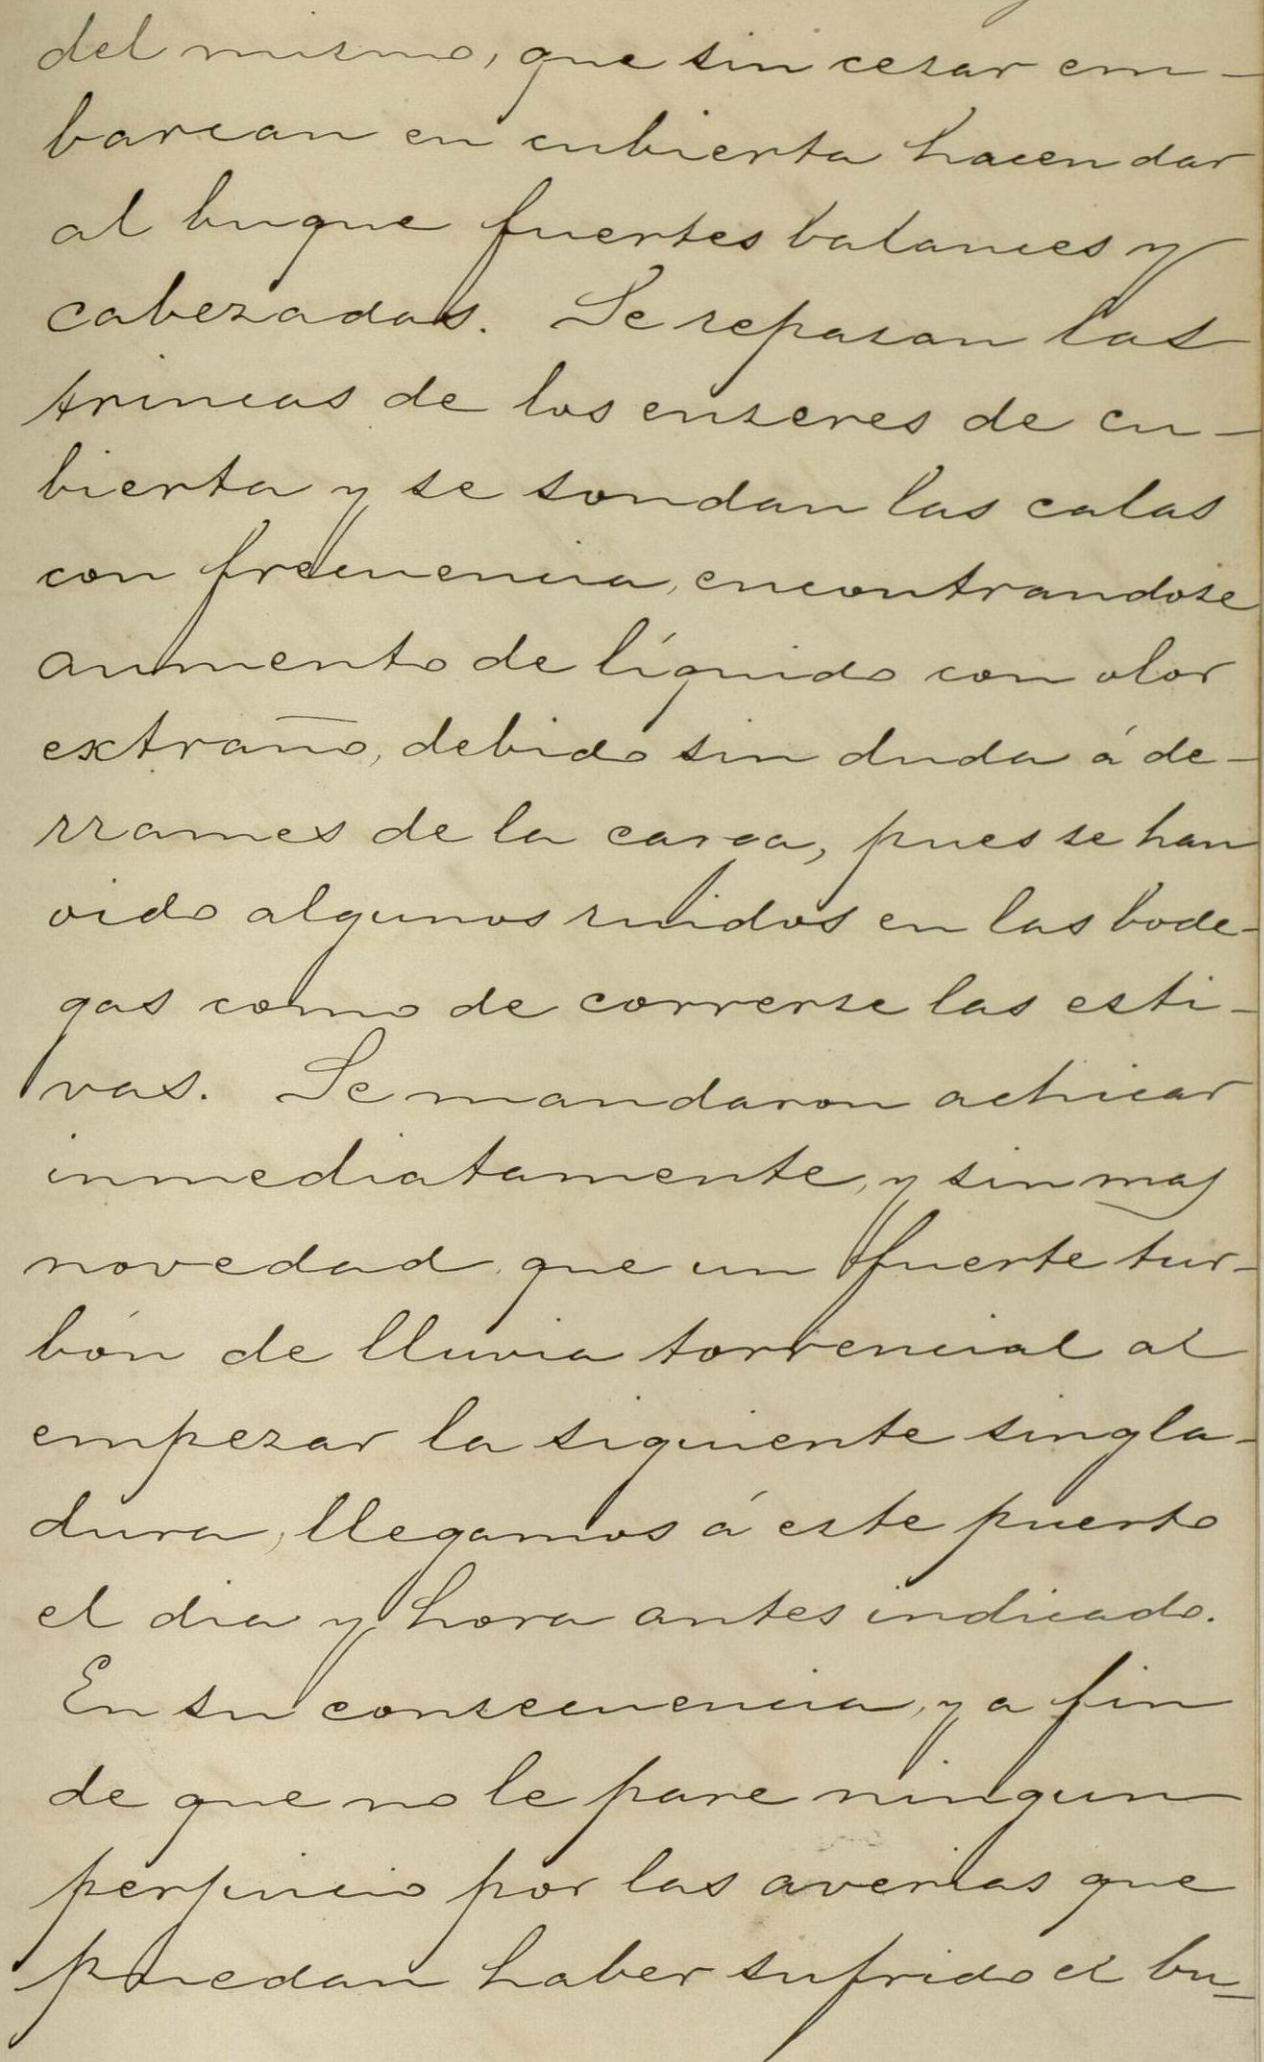 del mismo, que sin cesar em-
barcan en cubierta hacen dar
al buque fuertes balances y
cabezadas. Se repasan las
trincas de los enseres de cu-
bierta y se sondan las calas
con frecuencia, encontrandose
aumento de líquido con olor
extraño, debido sin duda á de-
rrames de la carga, pues se han
oido algunos ruidos en las bode-
gas como de correrse las esti-
vas. Se mandaron achicar
inmediatamente, y sin mas
novedad que un fuerte tur-
bón de lluvia torrencial al
empezar la siguiente singla-
dura, llegamos á este puerto
el dia y hora antes indicado.
En su consecuencia, y a fin
de que no le pare ningun
perjuicio por las averias que
puedan haber sufrido el bu-